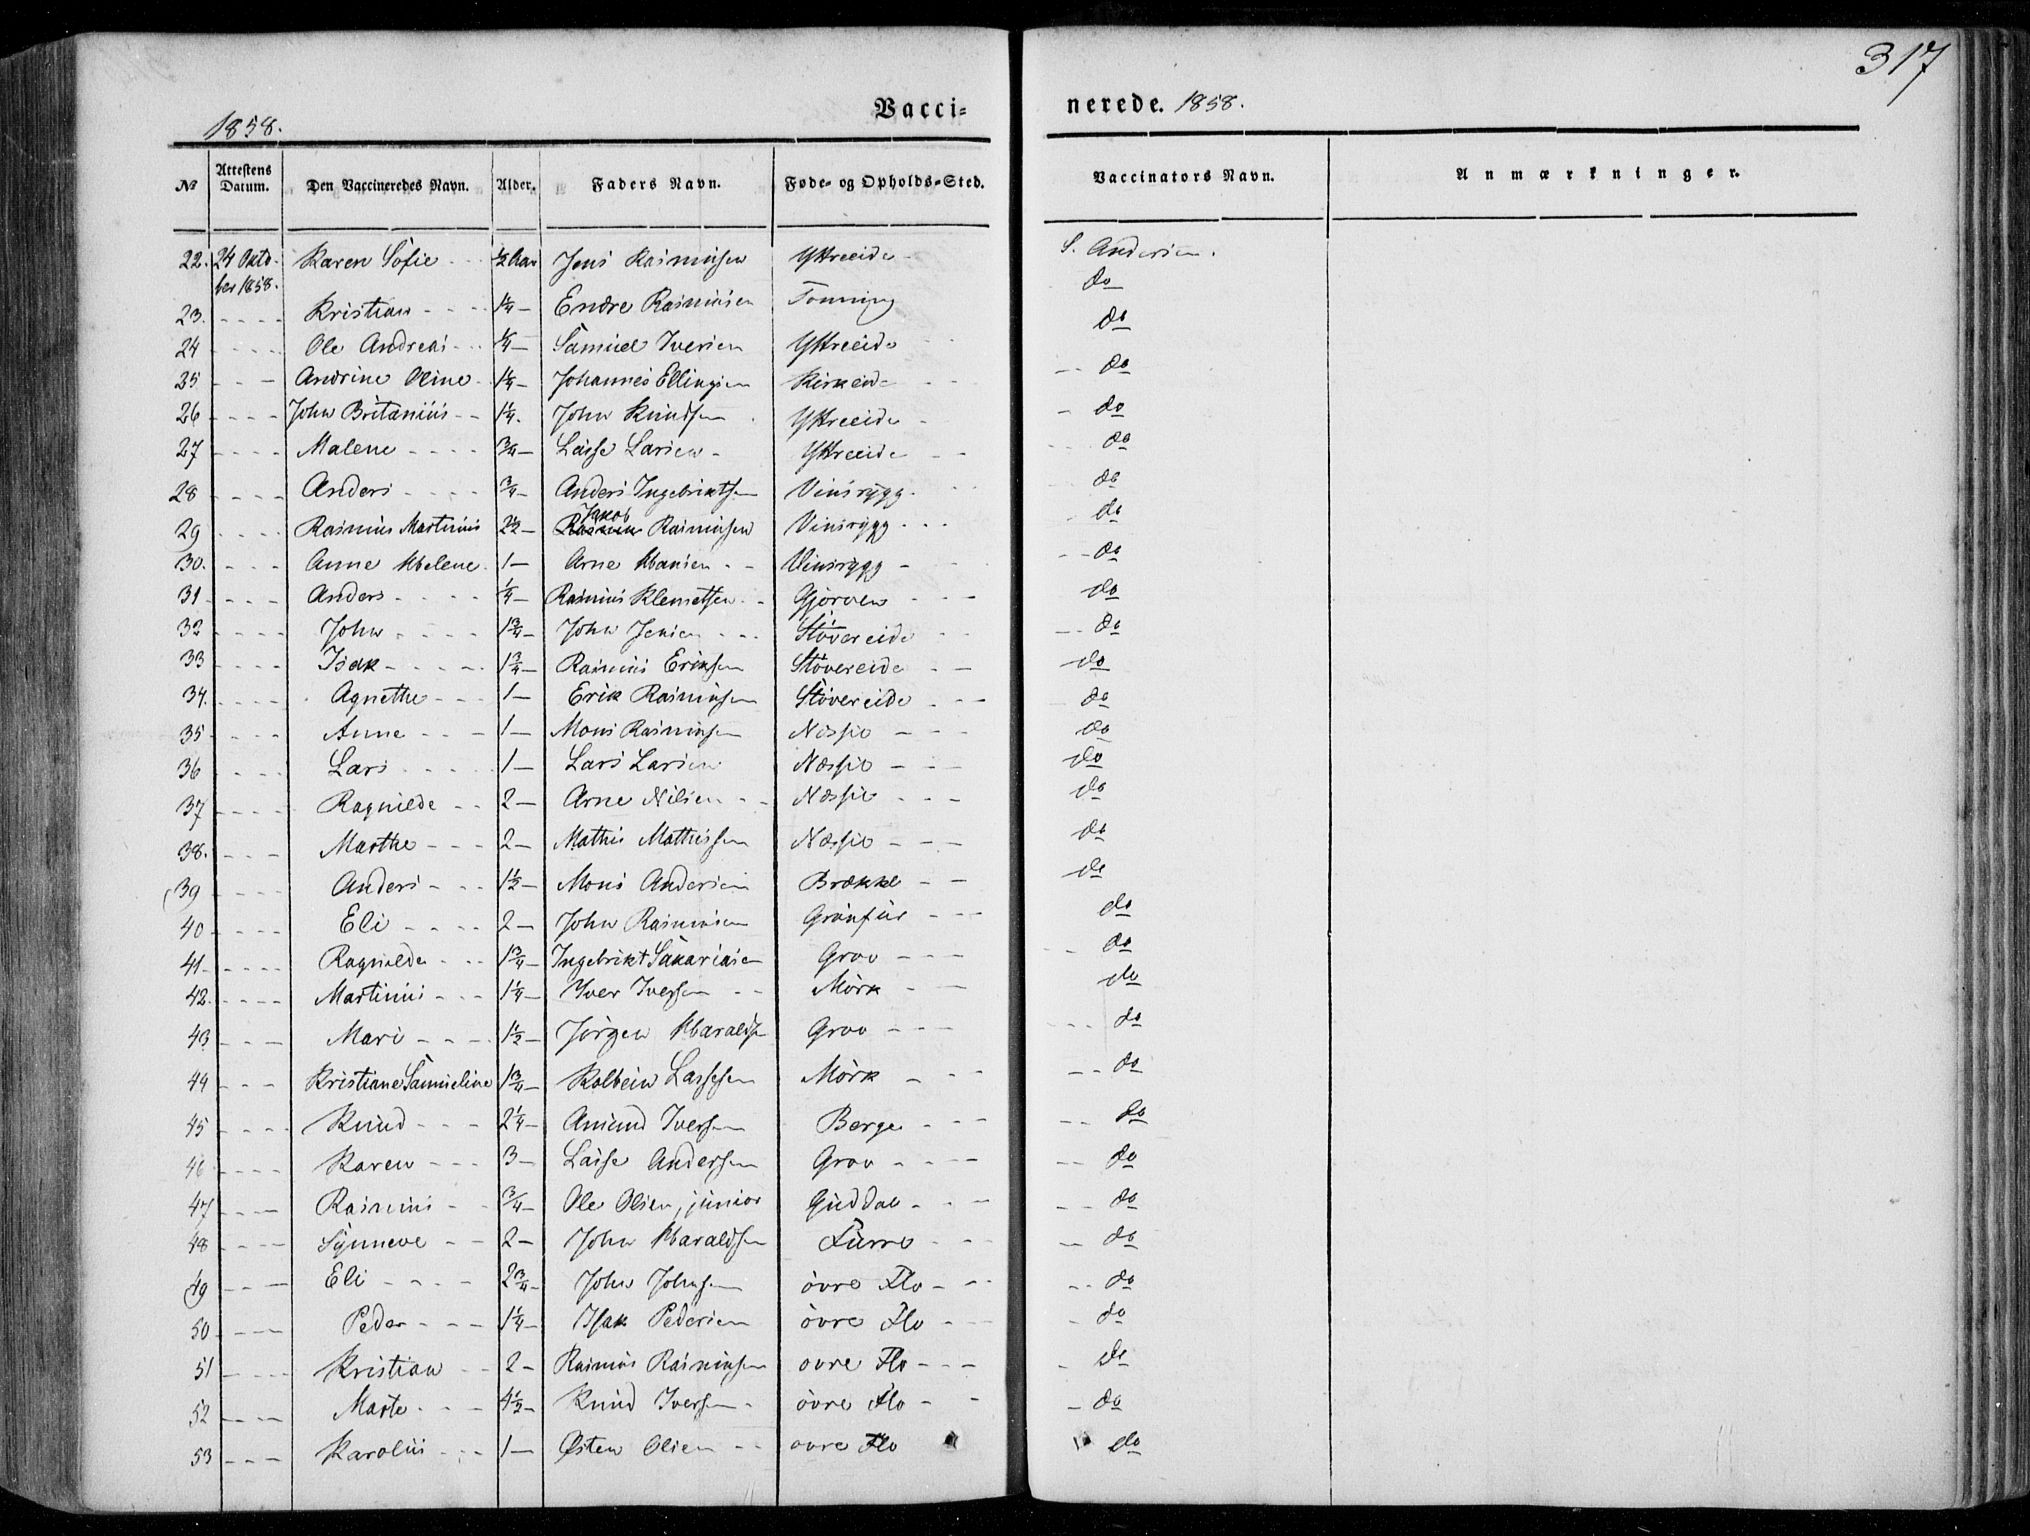 317
1858.
Vacci-
nerede. 1858.
№ Attestens Datum. Den Vaccineredes Navn. Alder. Faders Navn. Føde- og Opholds-Sted. Vaccinators Navn. Anmærkninger.
22. 24 Okto- Karen Sofie - - ½ Aar Jens Rasmussen Yttreeide - S. Andersen.
ber 1858. do
23. - - - - Kristian - - - 1¼ - Endre Rasmussen Tonning do
24 - - - - Ole Andreas - - ¼ - Samuel Iversen Yttreeide - - do
25 - - - Andrine Oline - 1¼ - Johannes Ellingsen Kirkeide - - do
26 - - - - John Britanius - - 1¼. John Knudsen Yttreeide - do
27 - - - - Malene - - - - ¾ - Lasse Larsen - Yttreeide - - do
28 - - - - Anders - - - - ¾ - Anders Ingebriktsen Vinsrygg. - do
29 - - - - Rasmus Martinus 2½ - Jakob Rasmussen Vinsrygg - - - do
30. - - - Anne Helene. 1 - Arne Hansen - - Vinsrygg - do
31 - - - - Anders - - - - ¼ - Rasmus Klemetsen - - Gjørven - - - do
32 - - - - John - - - - 1¾ - John Jensen - - - Støvereide - - do
33 - - - - Isak - - - - - 1¾ - Rasmus Eriksen Støvereide - - do
34. - - - - Agnethe - - - 1 - Erik Rasmussen Støvereide - - - do
35 - - - - Anne - - - 1 - Mons Rasmussen Nesje - - - do
36 - - - - Lars - - - - 1 - Lars Larsen Næsje - - - do
37 - - - - Ragnilde - - 2 - Arne Nilsen - - Næsje - - - do
38. - - - Marthe - - - 2 - Mathis Mathissen Næsje - - - do
39 - - - - Anders - - - 1½ - Mons Andersen Brække - - do
40 - - - - Eli - - - - 2 - John Rasmussen Grønfur - - - do
41 - - - - Ragnilde - - - 1¾ - Ingebrikt Sakariasen Grov - - - do
42. - - - - Martinus - - - 1¼ - Iver Iversen - - Mørk - - do
43 - - - Mari - - - - 1½ - Jørgen Haraldsen Grov - - - do
44 - - - Kristiane Samueline 1¾ - Kolbein Lassesen Mørk - - do
45 - - - - Knud - - - 2¼ - Amund Iversen Berge - - - do
46 - - - - Karen - - - 3 - Lasse Andersen Grov - - - - do
47 - - - - Rasmus - - ¾ - Ole Olsen, junior Guddal - - - do
48 - - - - Synneve - - 2 - John Haraldsen Furre - - - do
49 - - - Eli - - - - 2¾ - John Johnsen øvre Flo - - - do
50 - - - - Peder - - - 1¼ - Isak Pedersen øvre Flo - - - do
51 - - - - Kristian - - 2 - Rasmus Rasmussen øvre Flo - - - do
52 - - - - Marte - - - 4½ - Knud Iversen - øvre Flo - - do
53 - - - Karolus - - - 1 - Østen Olsen - - øvre Flo do